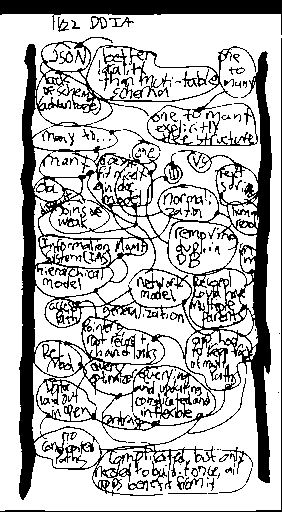 1.22 DDIA
JSON
better
locality
than multi-table
schema
one
to
many
lack
of schema
(advantages)
one to many
explicitly
tree structure
many to...
many
one
doesn't
fit nicely
in doc
model
ID
VS
text
string
joins are
weak
normali
zation
removing
dupl. in
DB
Information Mgmt
System (IMS)
hierarchical
model
network
model
Record
could have
multiple
parents
generalization
access
path
pointers
not foreign
chained links
app had
to keep track
of multi
paths
Rel
mod
query
optimizer
querying
and updating
complicated and
inflexible
Data
laid out
in open
contrast
no
complicated
paths
Complicated, but only
needed to build once, all
apps benefit from it